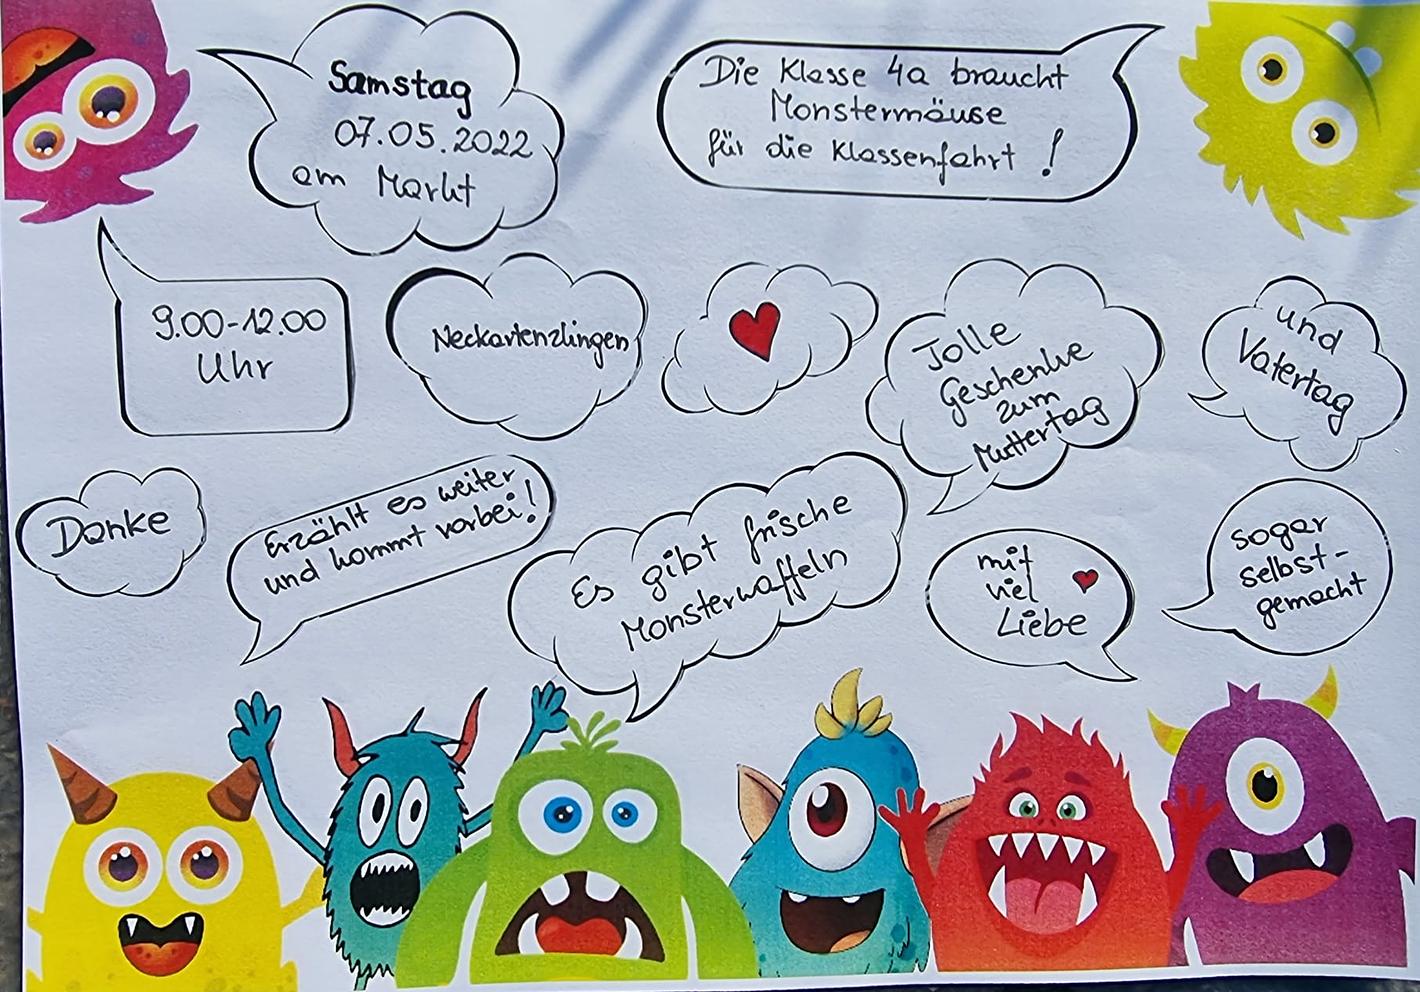 Samstag
07.05.2022
am Markt
Die Klasse 4a braucht
Monstermäuse
für die Klassenfahrt !
9.00-12.00
Uhr
Neckartenzlingen
Tolle
Geschenke
zum
Muttertag
und
Vatertag
Danke
Erzählt es weiter
und kommt vorbei!
Es gibt frische
Monsterwaffeln
mit
viel
Liebe
sogar
selbst-
gemacht